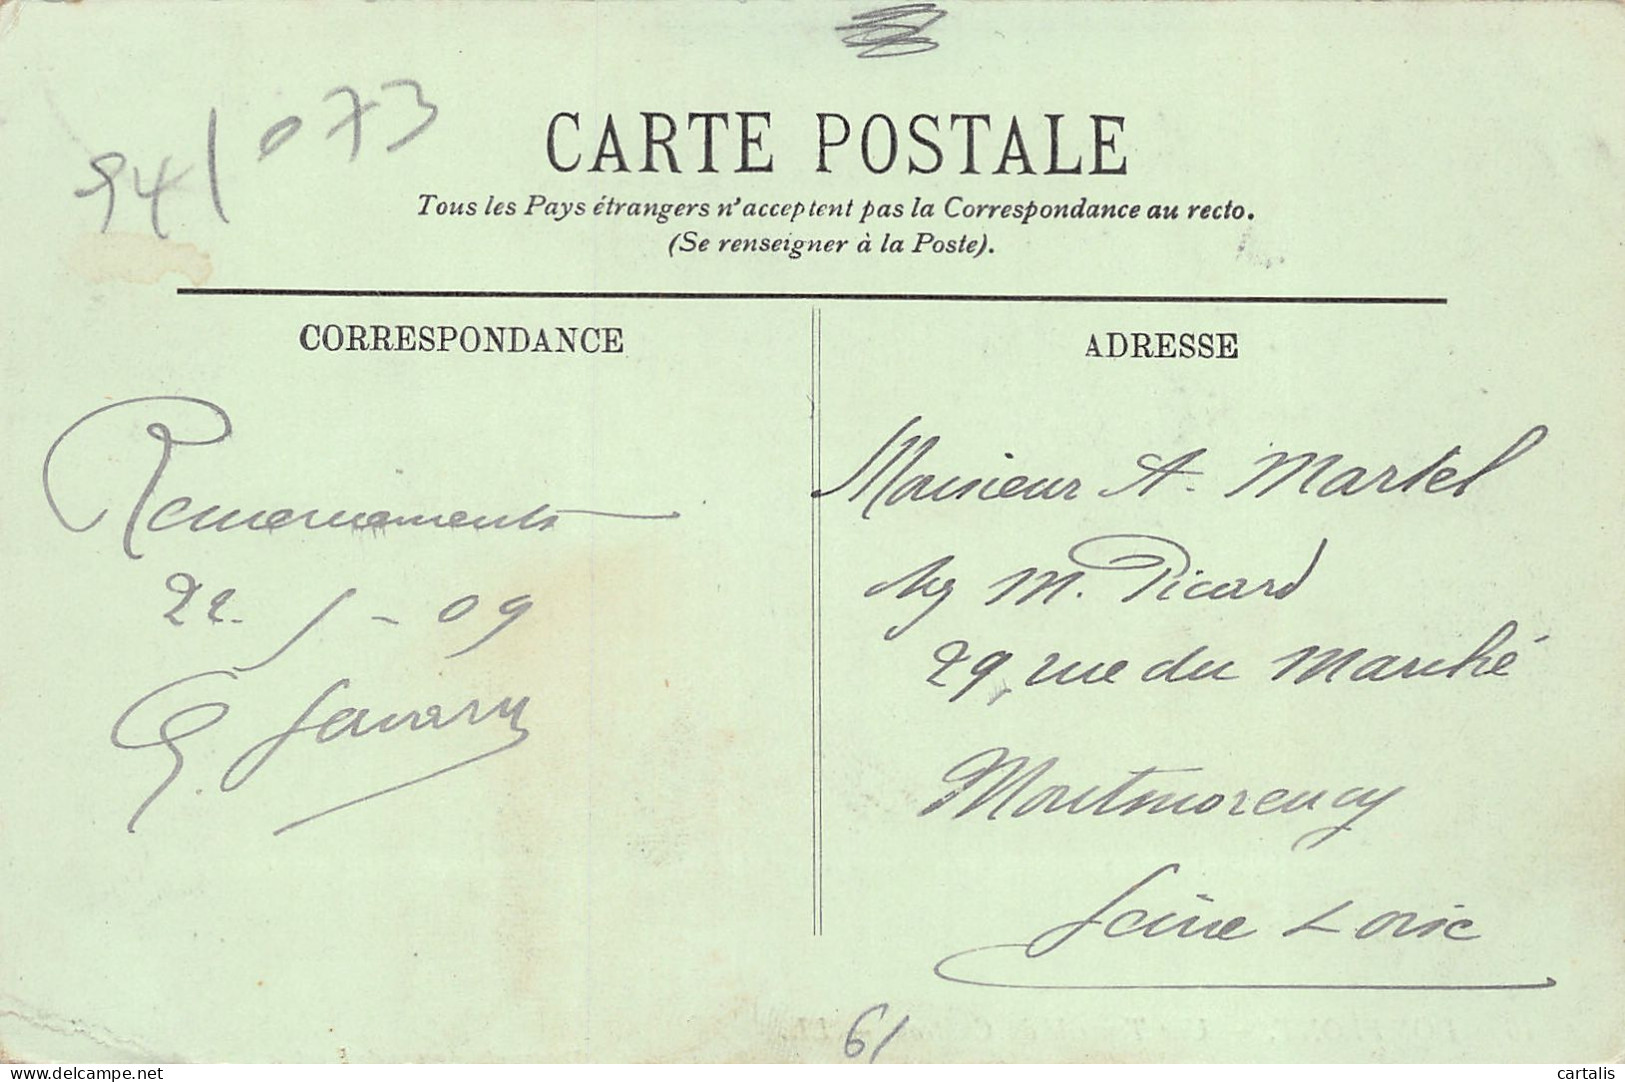 941 073
CARTE POSTALE
Tous les Pays étrangers n'acceptent pas la Correspondance au recto.
(Se renseigner à la Poste).
CORRESPONDANCE
Remerciements
22.
- 09
ADRESSE
Monsieur A. Martel
M. Picard
29, rue du Marché
Montmorency
Seine & Oise
61
delcampe.net
cartalis